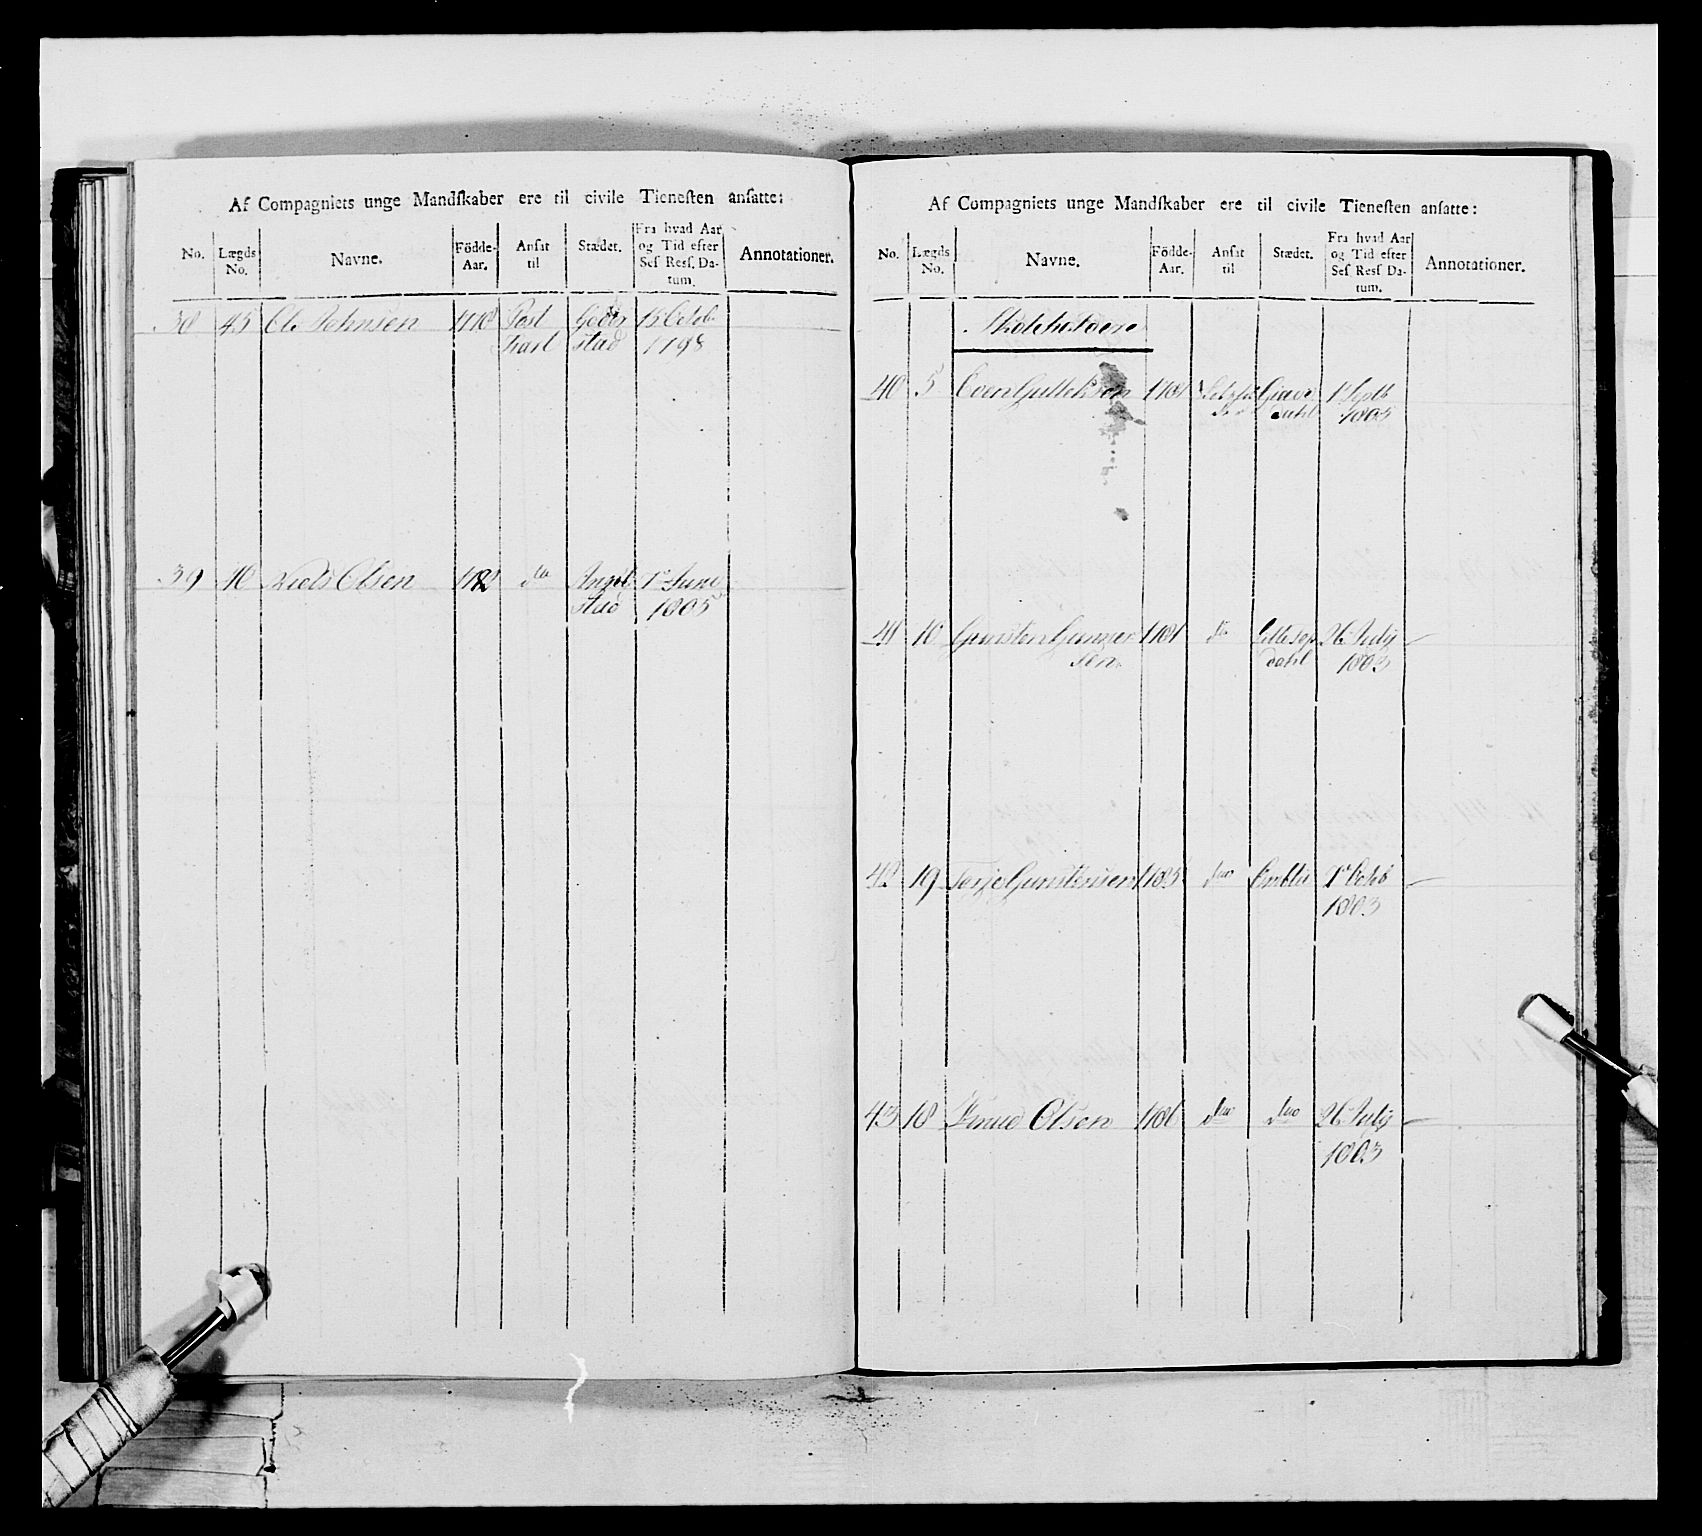 Af Compagniets unge Mandſkaber ere til civile Tieneſten anſatte:
No. Lægds No. Navne. Födde-Aar. Anſat til Stædet. Fra hvad Aar og Tid efter Seſ Reſſ. Datum. Annotationer.
38 45 Ole Johnsen Post 15 Octob
Karl stad 1798
39 10 Niels Olsen 1782 do 1e Juni
stad 1805
Af Compagniets unge Mandſkaber ere til civile Tieneſten anſatte:
No. Lægds No. Navne. Födde-Aar. Anſat til Stædet. Fra hvad Aar og Tid efter Seſ Reſſ Datum. Annotationer.
Skoleholdere
40 5 Even 1781 1e Septb
dahl 1805
41 10 Gunsten Gunner 1781 do 26 July
sen dahl 1803
42 19 Terje Gunstensen 1785 dto Embter 1e Octob
1803
43 18 Knud Olsen 1786 dto dto 26 July
1803